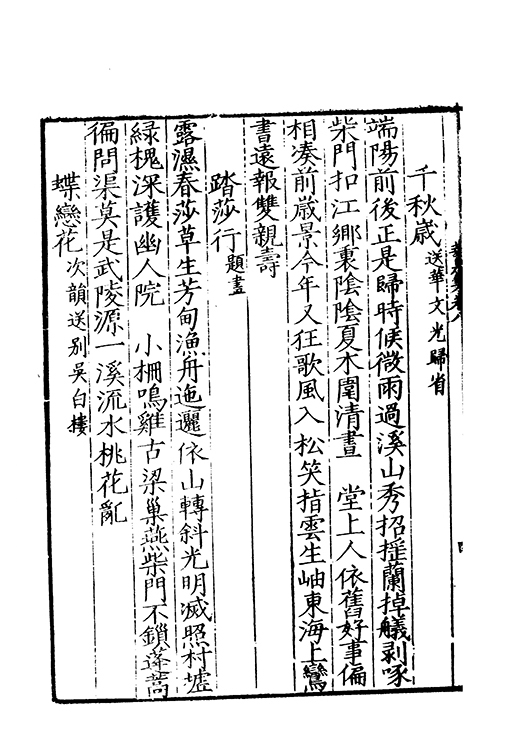 千秋歲送華文光歸省
端陽前後正是歸時候微雨過溪山秀招搖蘭掉艤剥啄
柴門扣江鄉裏陰陰夏木圍清晝　堂上人依舊好事偏
相湊前歲景今年又狂歌風入松笑指雲生岫東海上鸞
書遠報雙親壽
踏莎行題畫
露濕春莎草生芳甸漁舟迤邐依山轉斜光明滅照村墟
綠槐深護幽人院　小柵鳴雞古梁巢燕柴門不鎖蓬蒿
徧問渠莫是武陵源一溪流水桃花亂
蝶戀花次韻送别吳白樓